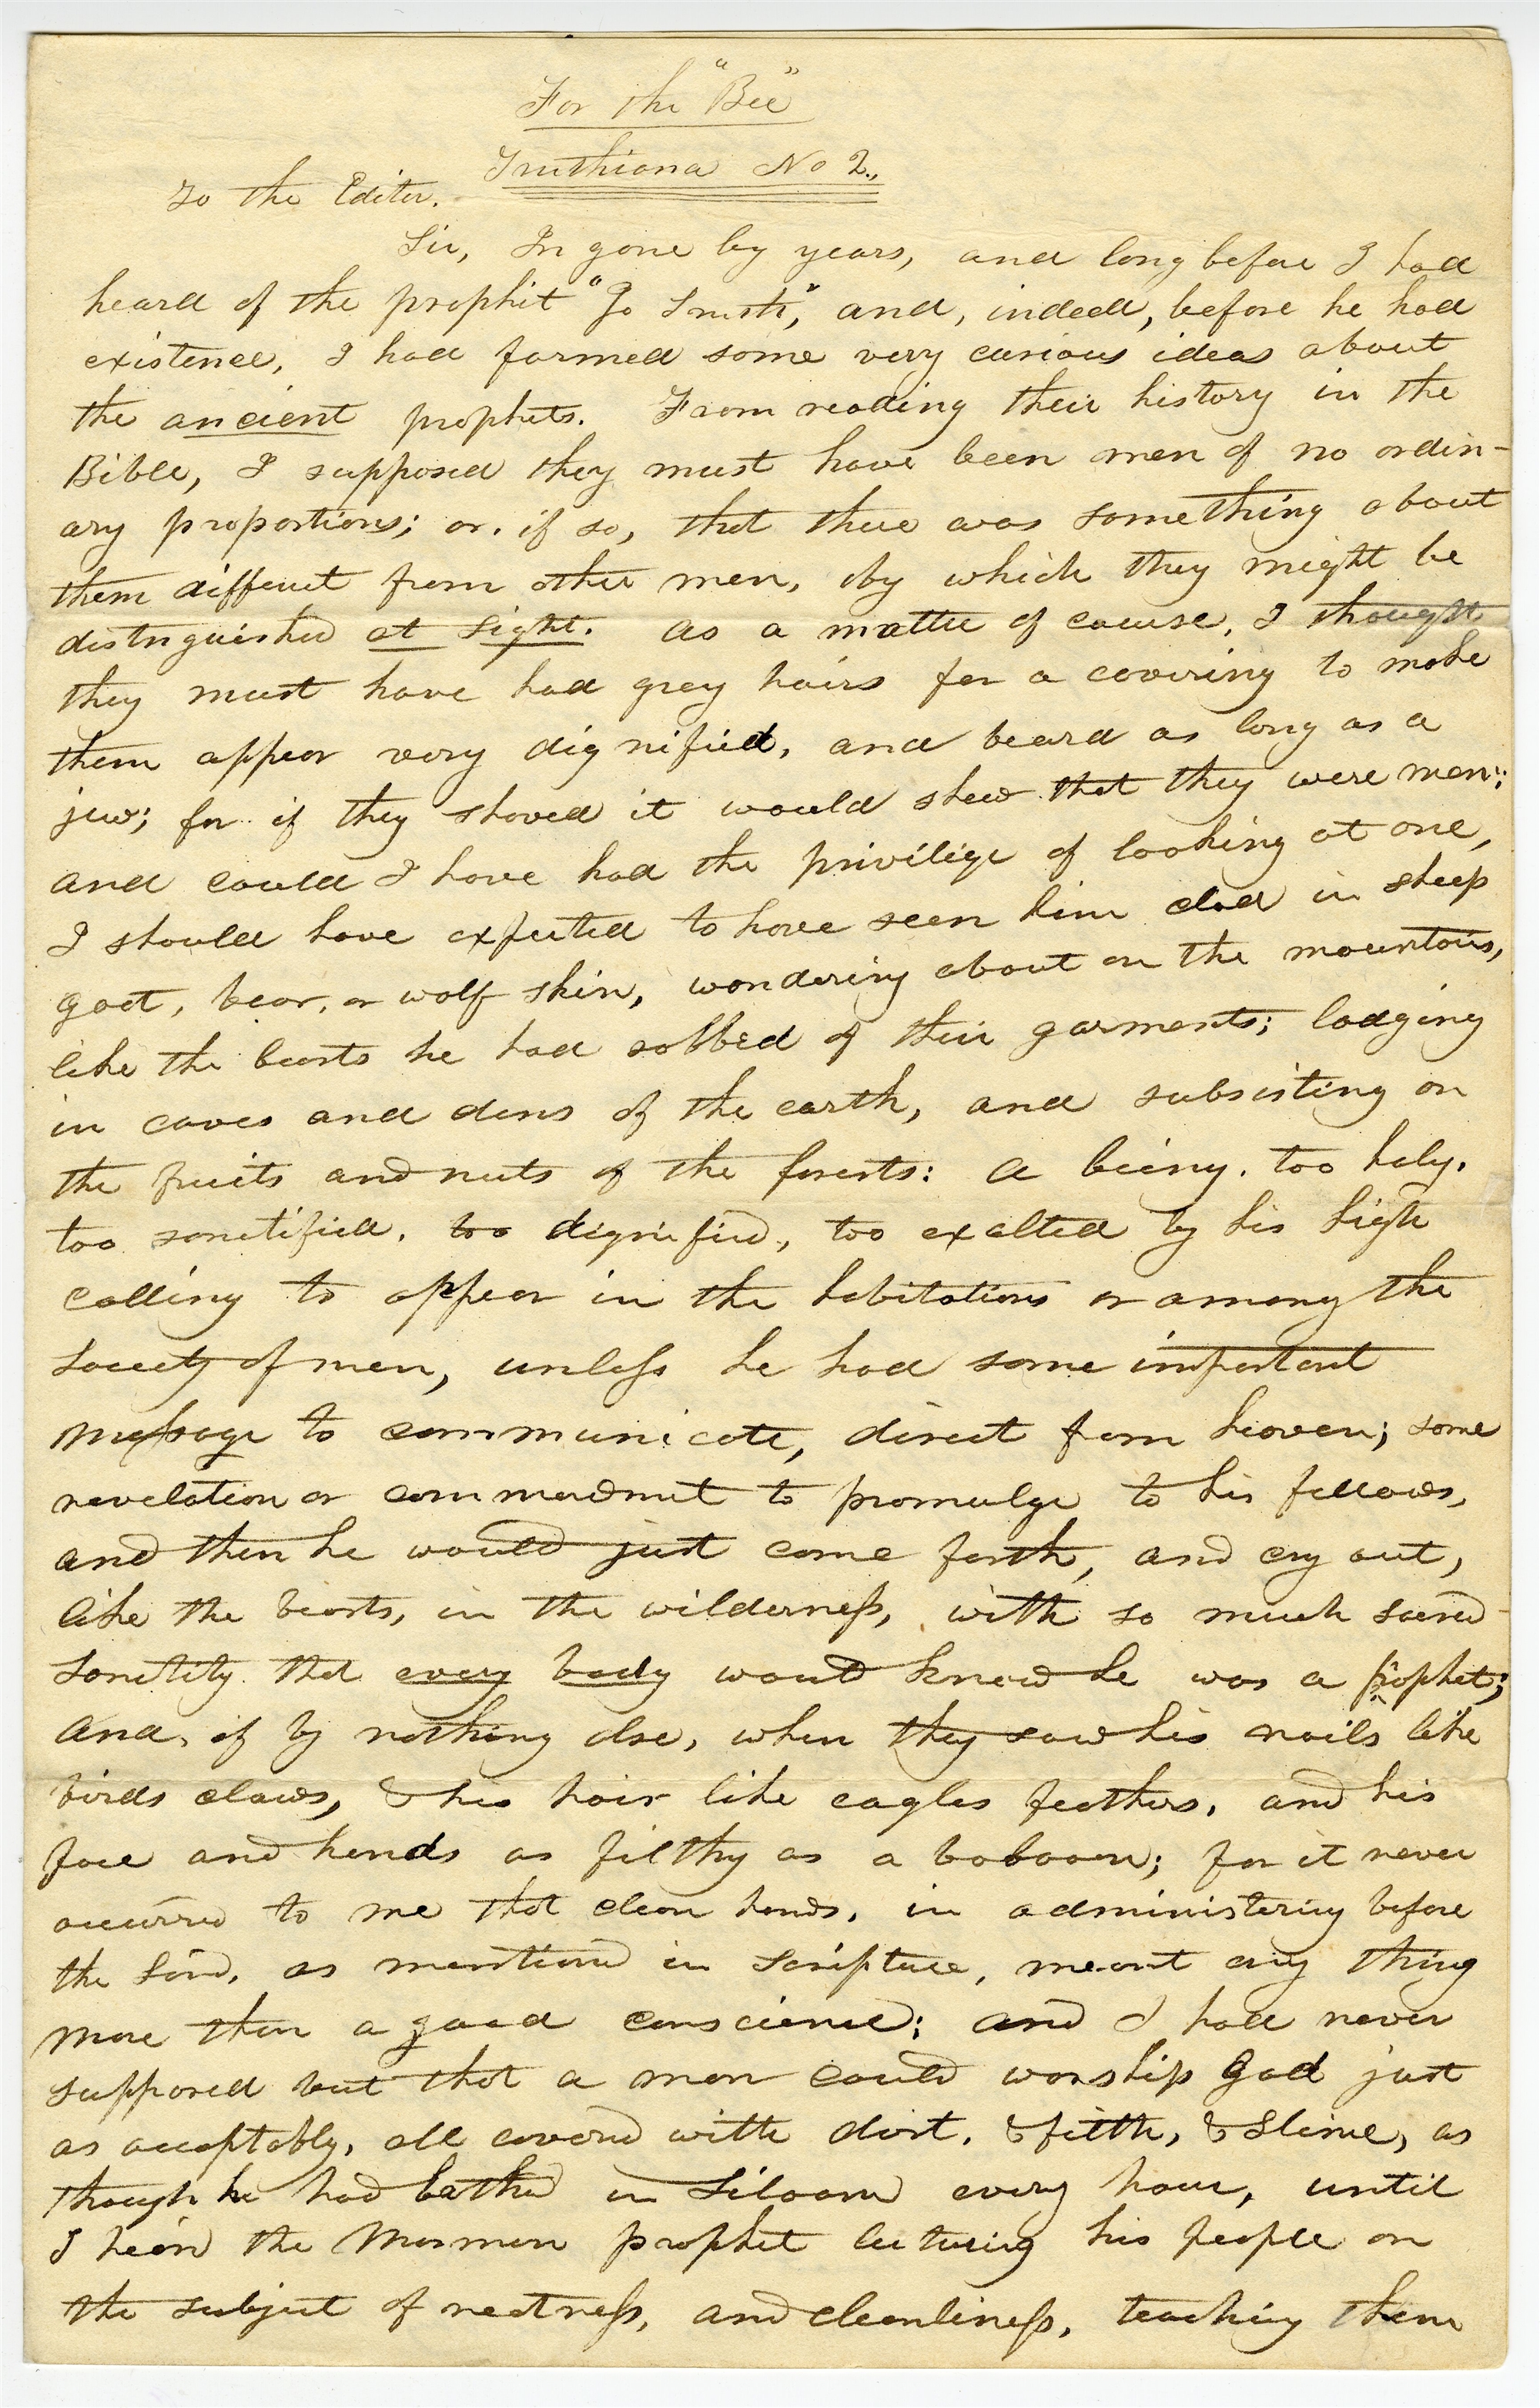 For the "Bee"
Truthiana No 2.,
To the Editor.
Sir, In gone by years, and long before I had
heard of the prophit "Jo Smith," and, indeed, before he had
existence, I had formed some very curious ideas about
the ancient prophets. From reading their history in the
Bible, I supposed they must have been men of no ordin-
ary proportions; or, if so, that there was something about
them different from other men, by which they might be
distnguished at sight. As a matter of course, I thought
they must have had grey hairs for a covering to make
them appear very dignified, and beard as long as a
jew; for if they shaved it would shew that they were men;
and could I have had the privilige of looking at one,
I should have expected to have seen him clad in sheep
goat, bear, or wolf skin, wandering about on the mountains,
like the beasts he had robbed of their garments; lodging
in caves and dens of the earth, and subsisting on
the fruits and nuts of the forests: a being, too holy,
too sanctified, too dignified, too exalted by his high
calling to appear in the habitations or among the
society of men, unless he had some important
message to communicate, direct from heaven; some
revelation or commandment to promulge to his fellows,
and then he would just come forth, and cry out,
like the beasts, in the wilderness, with so much sacred
sanctity that every body would know he was a prophet;
and, if by nothing else, when they saw his nails like
birds claws, & his hair like eagles feathers, and his
face and hands as filthy as a baboon; for it never
occurred to me that clean hands, in administering before
the Lord, as mentioned in scripture, meant any thing
more than a good conscience; and I had never
supposed but that a man could worship God just
as acceptably, all covered with dirt, & filth, & slime, as
though he had bathed in Siloam every hour, until
I heard the Mormon prophet lecturing his people on
the subject of neatness, and cleanliness, teaching them